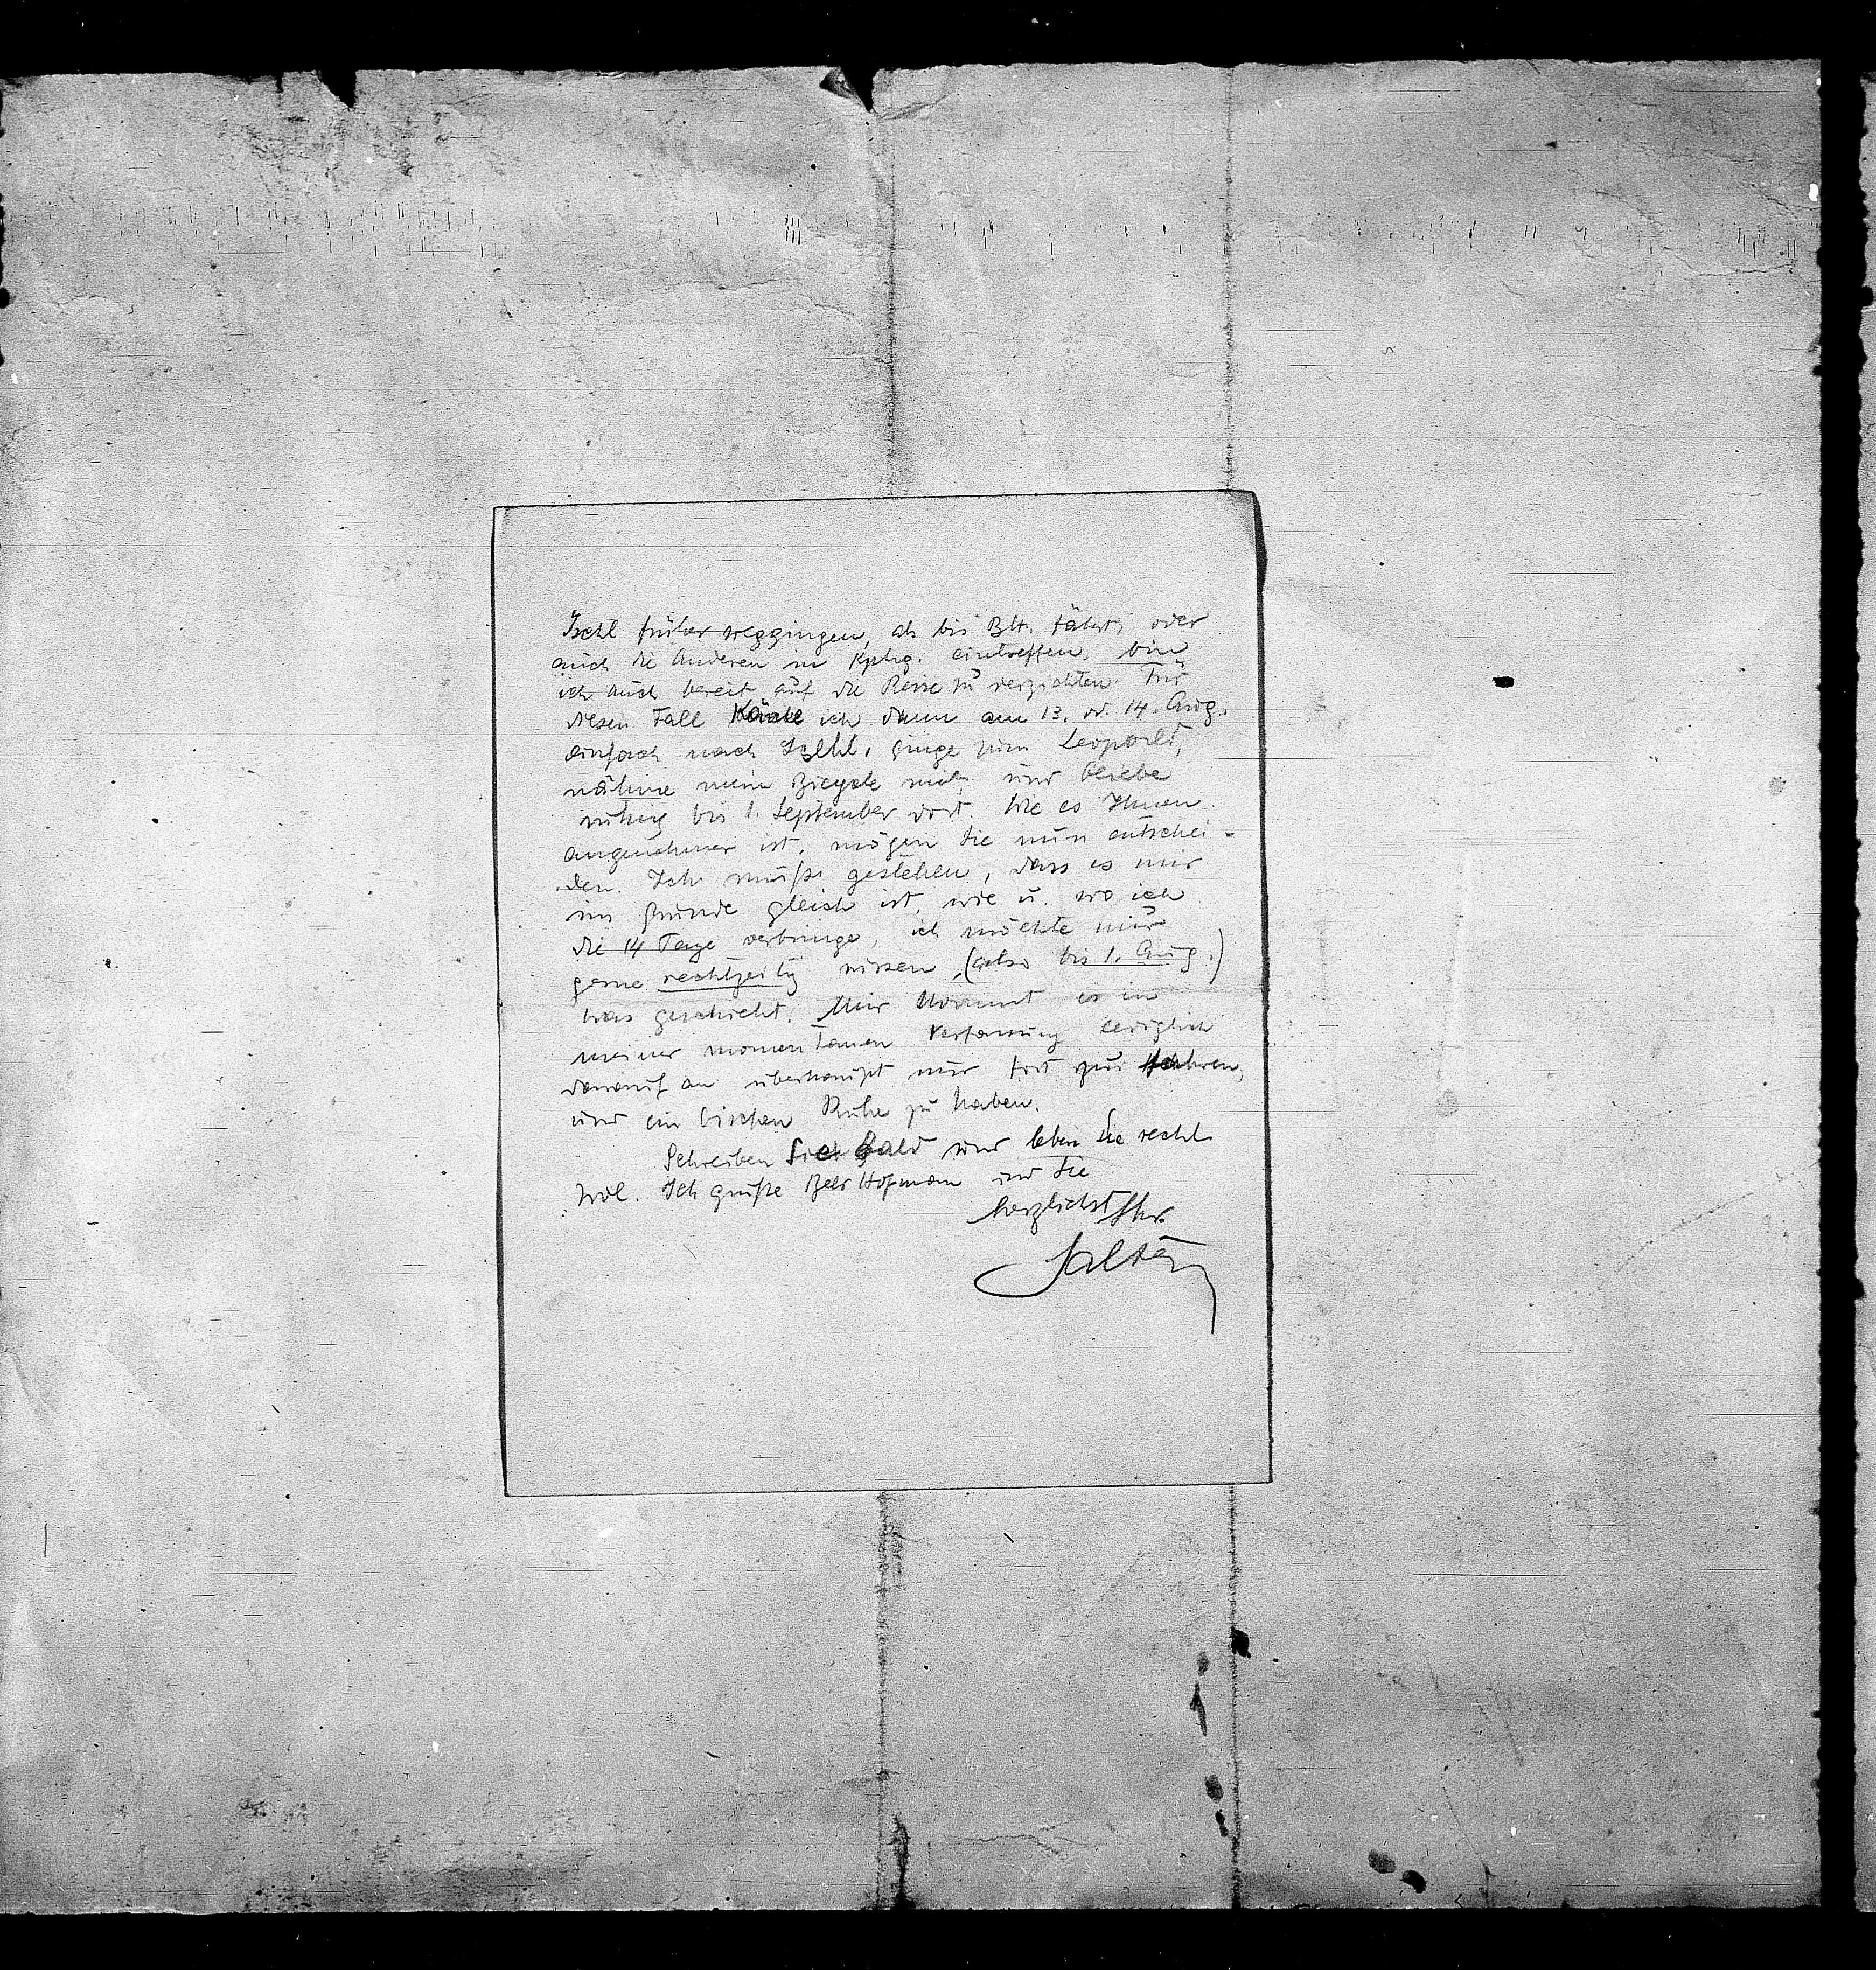 Ischl früher weggingen, als bis Blt. fährt, oder
auch die Anderen in Kphg. eintreffen, bin
ich auch bereit auf die Reise zu verzichten. Für
diesen Fall käme ich dann am 13. od. 14. Aug.
einfach nach Ischl, ginge zum Leopold,
nähme mein Bicycle mit, und bliebe
ruhig bis 1. September dort. Wie es Ihnen
angenehmer ist, mögen Sie nun entschei-
den. Ich muß gestehen, dass es mir
im Grunde gleich ist, wie u. wo ich
die 14 Tage verbringe, ich möchte nur
gerne rechtzeitig wissen, (also bis 1. Aug.)
was geschieht. Mir kommt es in
meiner momentanen Verfassung lediglich
darauf an überhaupt nur fort zu fahren,
und ein bischen Ruhe zu haben.
Schreiben Sie bald und leben Sie recht
wol. Ich grüße Beer Hofmann und Sie
herzlichst Ihr
Salten